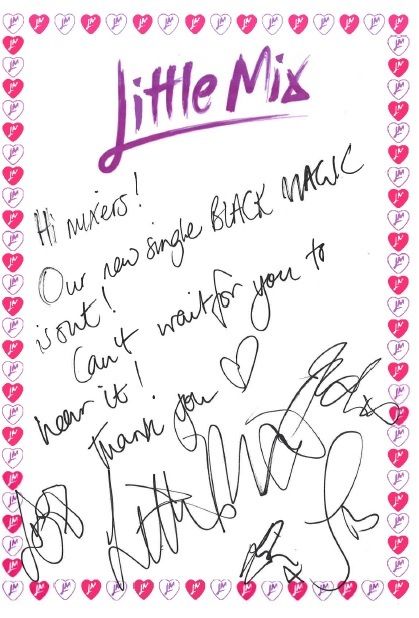 Little Mix
Hi mixers!
Our new single BLACK MAGIC
is out!
Can't wait for you to
hear it!
Thank you
Little Mix